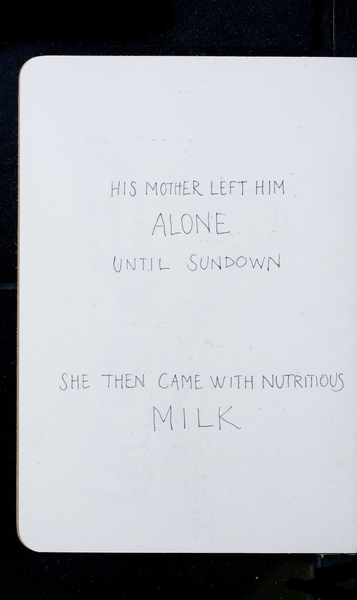 HIS MOTHER LEFT HIM
ALONE
UNTIL SUNDOWN
SHE THEN CAME WITH NUTRITIOUS
MILK